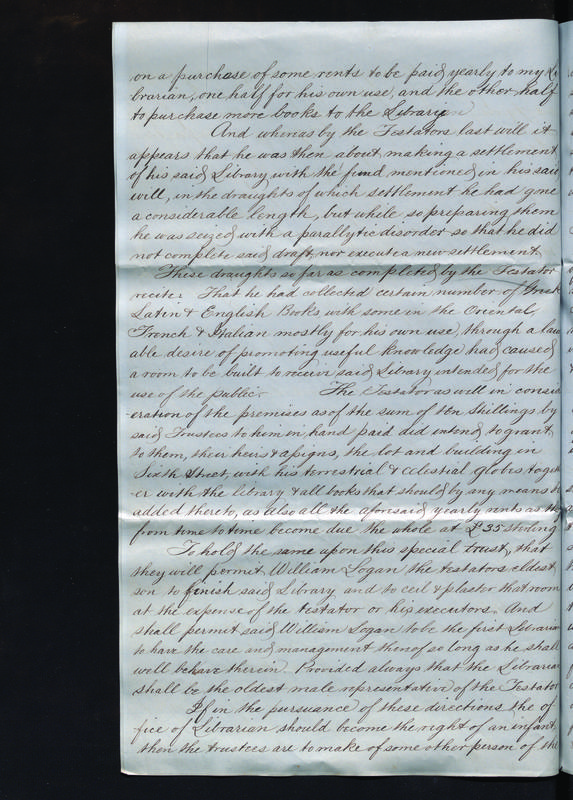 on a purchase of some rents to be paid yearly to my Li
brarian, one half for his own use, and the other half
to purchase more books to the Library
And whereas by the Testators last will it
appears that he was then about making a settlement
of his said Library with the fund mentioned in his said
will, in the draughts of which settlement he had gone
a considerable length, but while so preparing them
he was seized with a parallytic disorder so that he did
not complete said draft, nor execute a new settlement
These draughts so far as completed by the Testator
recite: That he had collected certain number of Greek
Latin & English Books with some in the Oriental,
French & Italian mostly for his own use, through a laud
able desire of promoting useful knowledge had caused
a room to be built to receive said Library intended for the
use of the public. The Testator as well in consid
eration of the premises as of the sum of ten Shillings by
said Trustees to him in hand paid did intend to grant
to them, their heirs & assigns, the lot and building in
Sixth Street, with his terrestrial & celestial globes togeth
er with the library & all books that should by any means be
added thereto, as also all the aforesaid yearly rents as
from time to time become due the whole at £35 sterling
To hold the same upon this special trust, that
they will permit William Logan the testators eldest
son to finish said Library and to ceil & plaster that room
at the expense of the testator or his executors. And
shall permit said William Logan to be the first Librarian
to have the care and management thereof so long as he shall
well behave therein. Provided always that the Librarian
shall be the oldest male representative of the Testator
If in the pursuance of these directions the of
fice of Librarian should become the right of an infant
then the trustees are to make of some other person of the